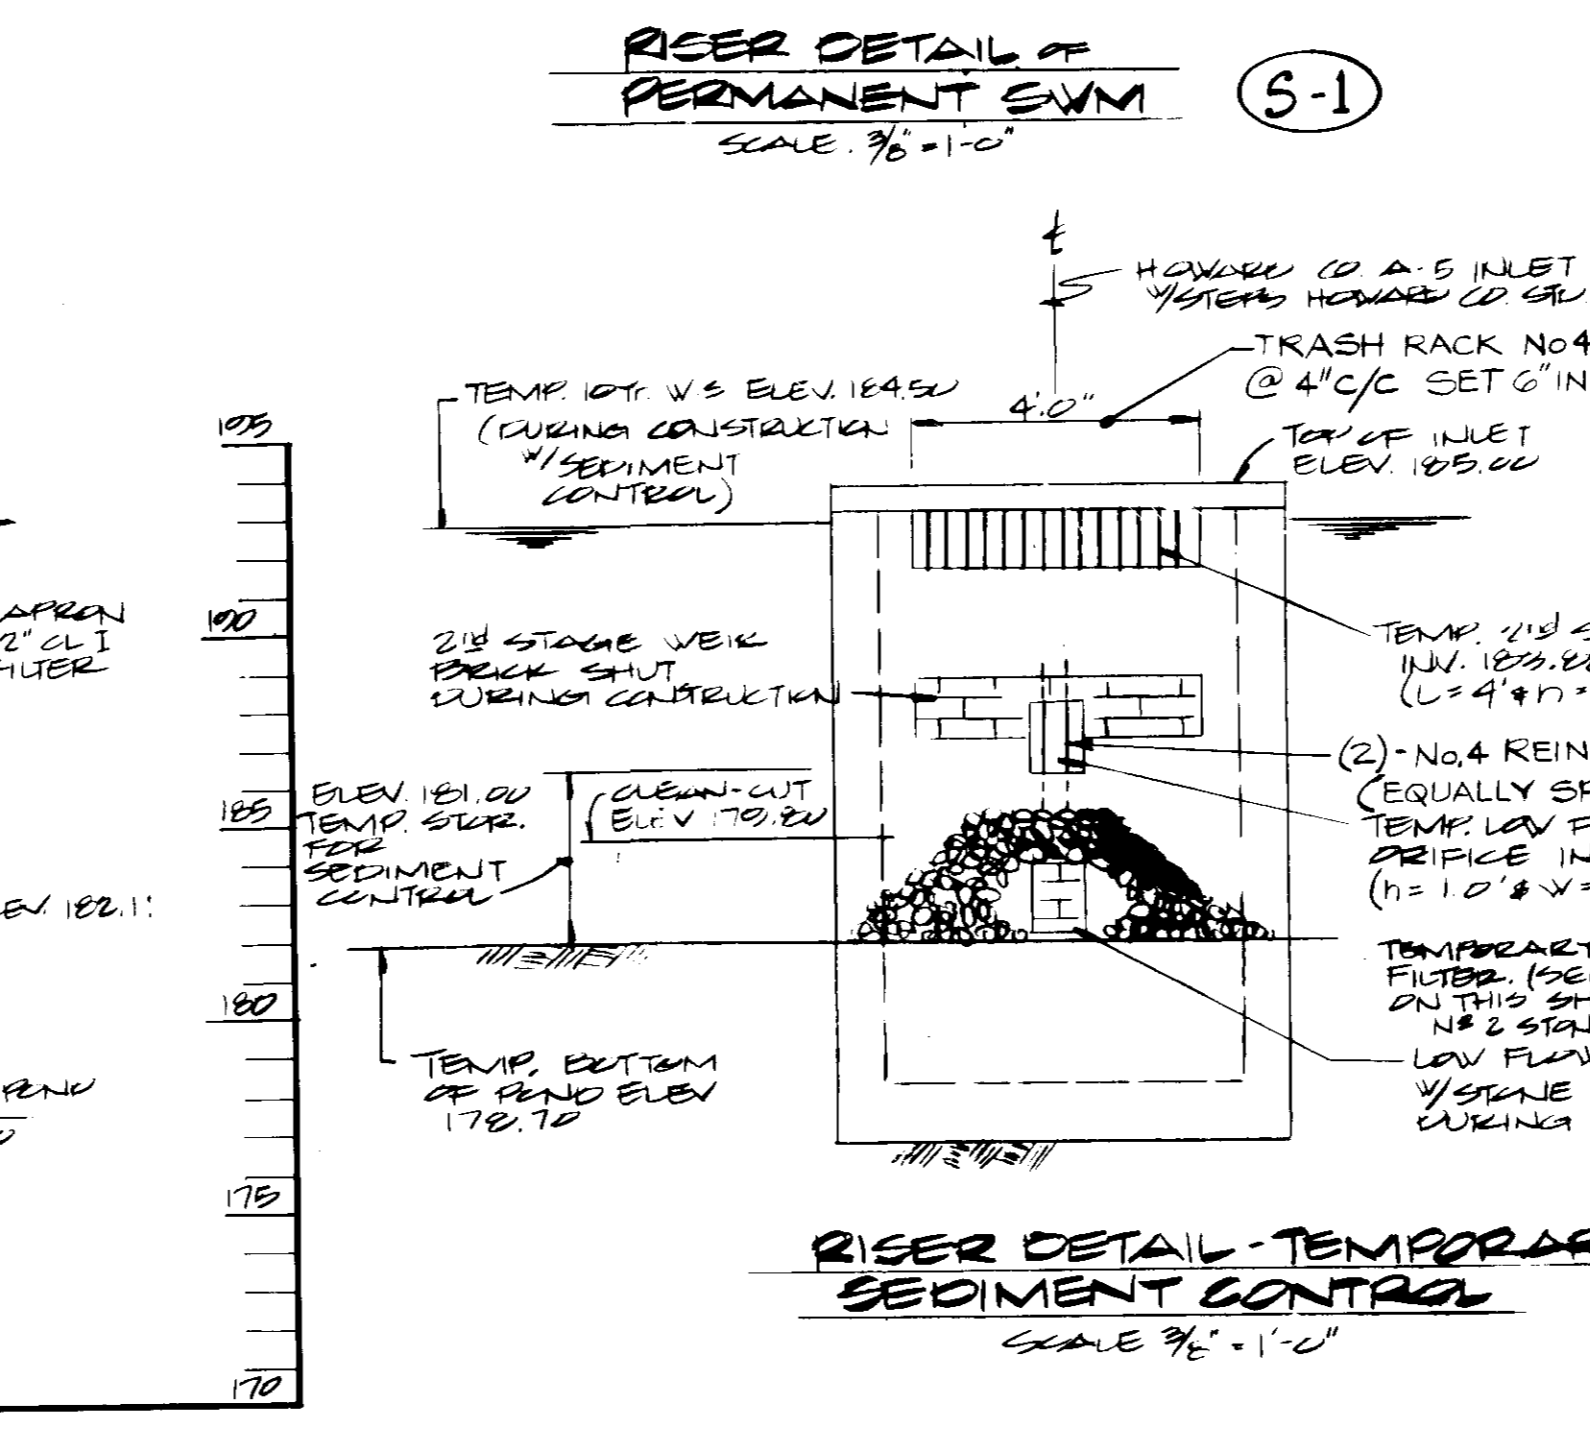 RISER DETAIL OF
PERMANENT SWM
S-1
SCALE. 3/8" = 1'-0"
℄
HOWARD CO. A-5 INLET
W/STEPS HOWARD CO. STD.
TRASH RACK No4
@ 4" C/C SET 6" IN
4'.0"
TEMP. 10Yr. W.S ELEV. 184.50
(DURING CONSTRUCTION
W/SEDIMENT
CONTROL)
TOP OF INLET
ELEV. 185.00
195
190
185
180
175
170
APRON
2" CL I
FILTER
2nd STAGE WEIR
BRICK SHUT
DURING CONSTRUCTION
TEMP. 2nd S
INV. 183.8
(L=4' & h=
(2)-No.4 REIN
(EQUALLY SP
TEMP. LOW F
ORIFICE IN
(h= 1.0' & W=
ELEV. 181.00
TEMP. STOR.
FOR
SEDIMENT
CONTROL
CLEAN-OUT
ELEV 179.80
EV. 182.1
TEMPORARY
FILTER. (SE
ON THIS SH
No 2 STON
LOW FLOW
W/STONE
DURING
POND
TEMP. BOTTOM
OF POND ELEV
178.70
RISER DETAIL - TEMPORAR
SEDIMENT CONTROL
SCALE 3/8" = 1'-0"